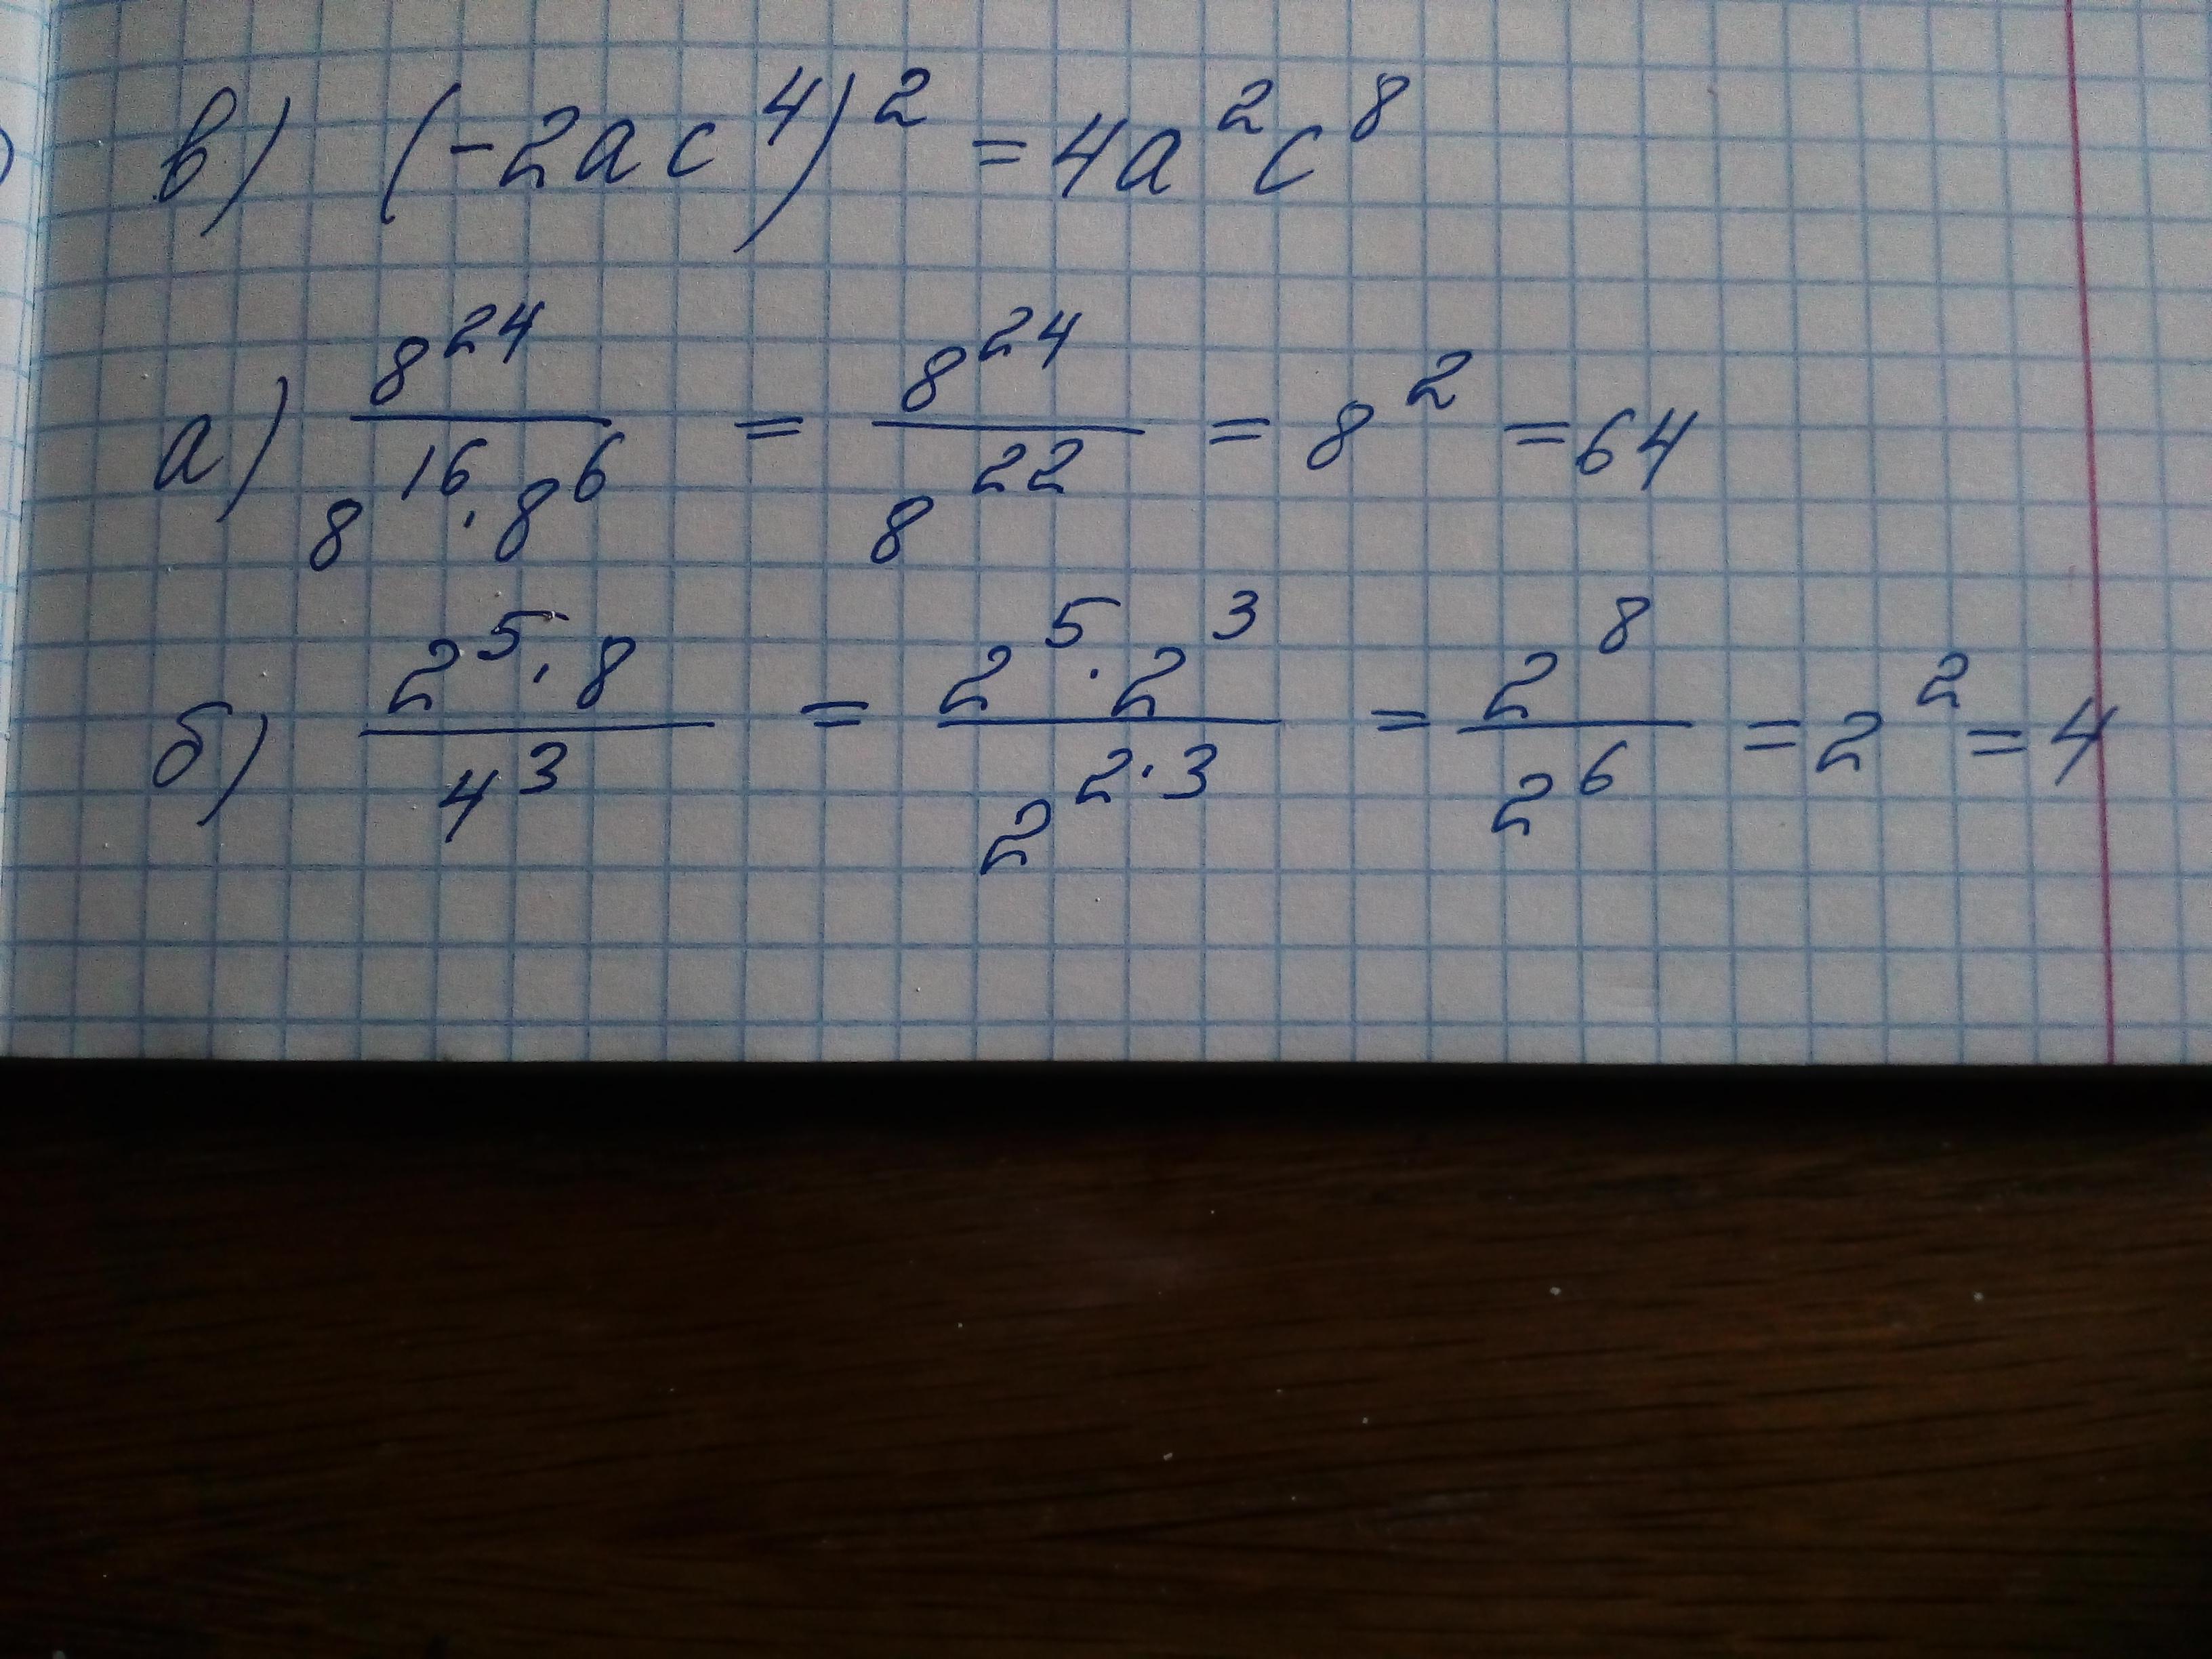 в) (-2ac⁴)² = 4a²c⁸
а) 8²⁴ / (8¹⁶ · 8⁶) = 8²⁴ / 8²² = 8² = 64
б) (2⁵ · 8) / 4³ = (2⁵ · 2³) / 2²˙³ = 2⁸ / 2⁶ = 2² = 4